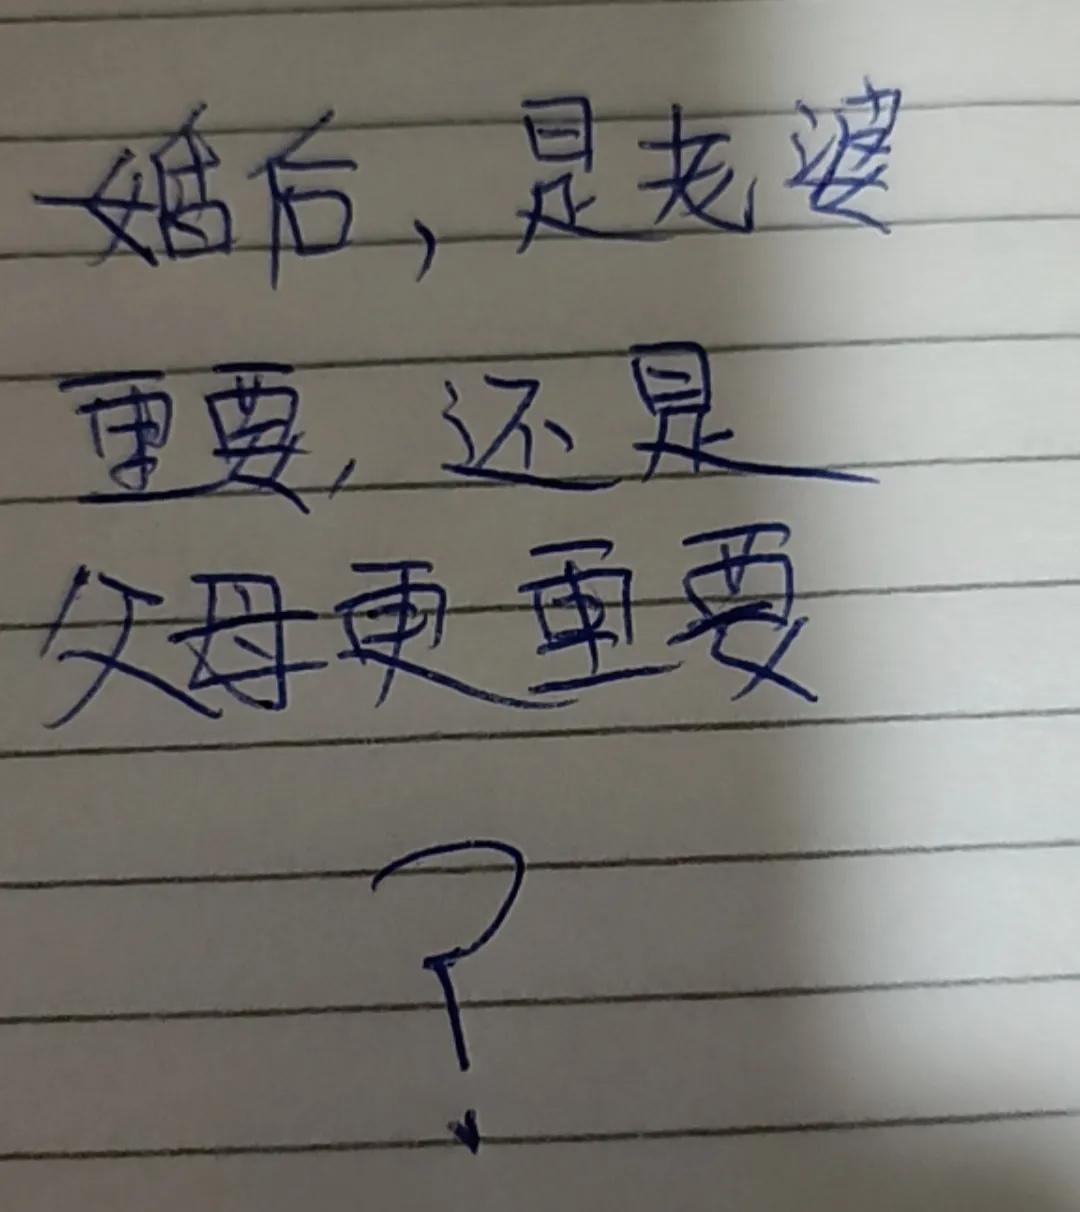 婚后，是老婆
重要，还是
父母更重要
？